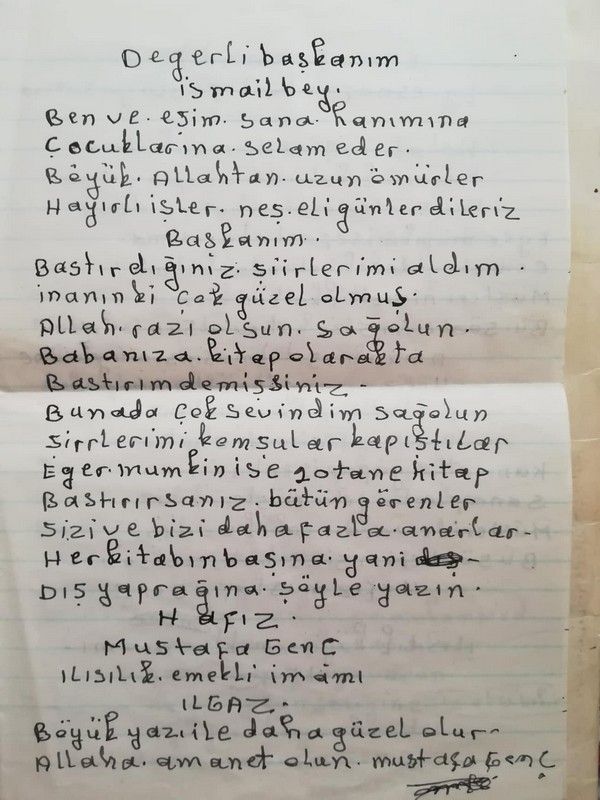 Değerli başkanım
ismail bey.
Ben ve. eşim. sana. hanımına
Çocuklarına. selam eder.
Böyük. Allahtan. uzun ömürler
Hayırlı işler. neş.eli günler dileriz
Başkanım.
Bastırdığınız. şiirlerimi aldım.
inanın ki çok güzel olmuş.
Allah. razi olsun. sağolun.
Babanıza. kitap olarakta
Bastırım demişsiniz.
Bunada çok sevindim sağolun
şirrlerimi komşular kapıştılar
Eğer. mumkin ise 20 tane kitap
Bastırırsanız. bütün görenler
sizi ve bizi daha fazla. anarlar-
Her kitabın başına. yani -
Dış yaprağına. şöyle yazın.
Hafız.
Mustafa GENÇ
ILISILIK. emekli imamı
ILGAZ.
Böyük yazı ile daha güzel olur-
Allaha. amanet olun. mustafa GENÇ